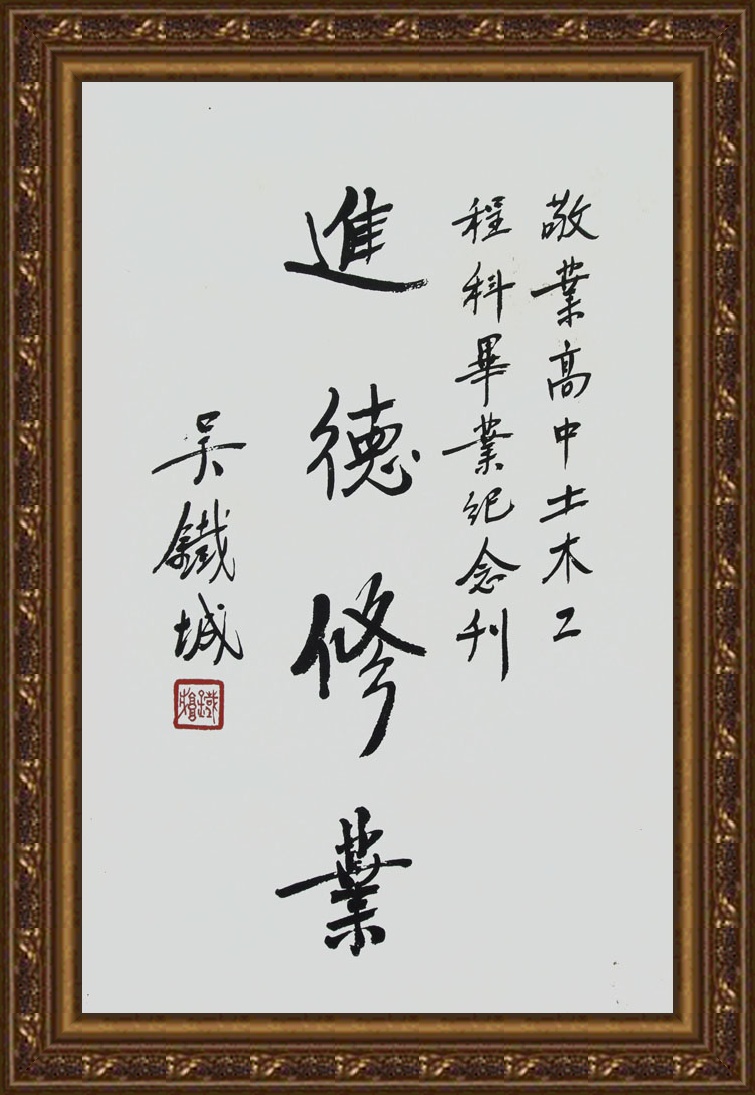 敬業高中土木工
程科畢業紀念刊
進德修業
吳鐵城